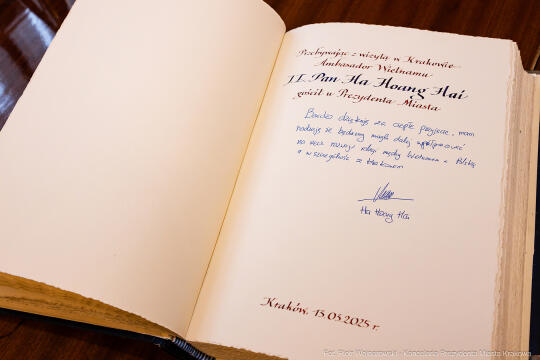 Przebywając z wizytą w Krakowie
Ambasador Wietnamu
J.E. Pan Ha Hoang Hai
gościł u Prezydenta Miasta
Bardzo dziękuję za ciepłe przyjęcie, mam
nadzieję że będziemy mogli dalej współpracować
na rzecz rozwoju relacji między Wietnamem a Polską
a w szczególności z Krakowem
Ha Hoang Hai
Kraków, 13.03.2025 r.
Fot. Piotr Wojnarowski - Kancelaria Prezydenta Miasta Krakowa